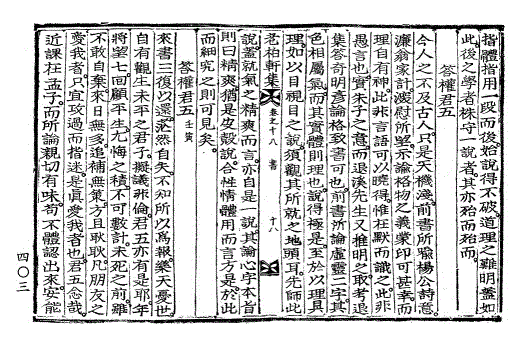 指體指用一段而後始說得不破道理之難明蓋如
此後之學者株守一說者其亦殆而殆而
答權君五
今人之不及古人只是天機淺前書所喩楊公詩意
濂翁家計深慰所望示諭格物之義蒙印可甚幸而
理自有神此非言語可以曉得惟在默而識之此非
愚言也實朱子之意而退溪先生又推明之取考退
集答奇明彦論格致書可也前書所論虛靈二字其
色相屬氣而其實體則理也說得極是至於以理具
理如以目視目之說須觀其所就之地頭耳先師此
老柏軒集
卷之十八
書
十八
說蓋就氣之精爽而言亦自是一說其論心字本旨
則曰精爽猶是皮殼說合性情體用而言方是於此
而細究之則可見矣
答權君五 壬寅
來書三復乃還茫然自失不知所以爲報樂天憂世
自有觀生未平之君子擬議非倫君五亦有是耶年
將望七回顧平生尤悔之積不可數計未死之前雖
不敢自棄來日無多追補無策方且耿耿凡朋友之
愛我者只宜攻過而指迷是眞愛我者也君五念哉
近課在孟子而所論親切有味苟不體認出來安能
四〇三